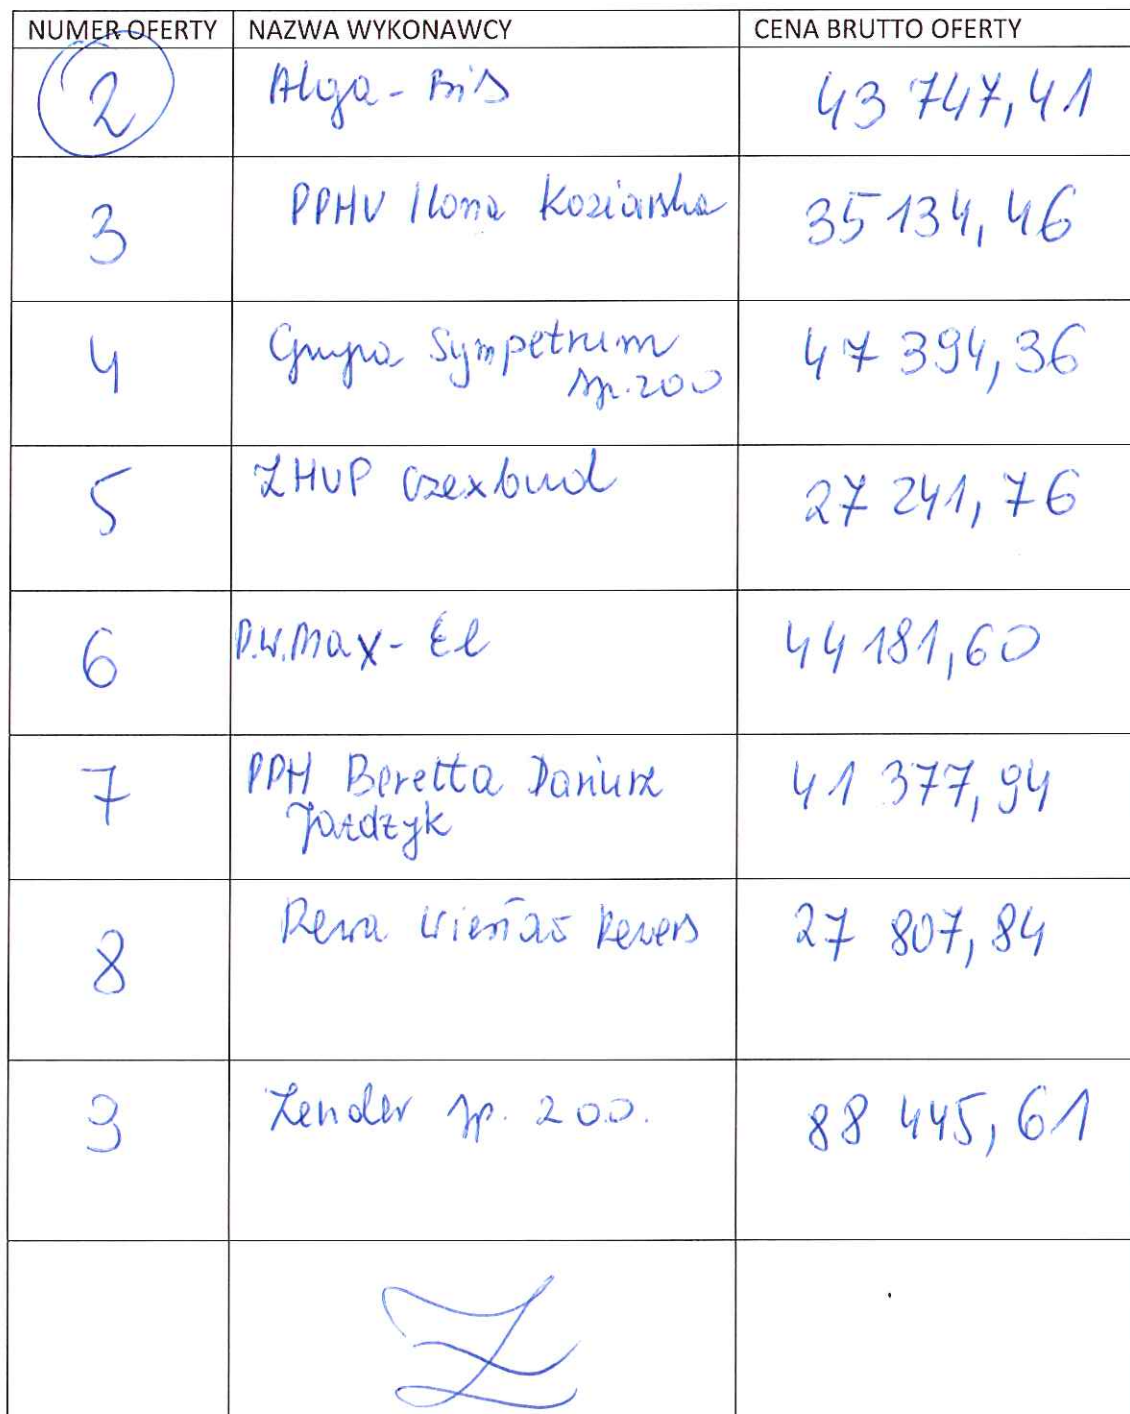 NUMER OFERTY NAZWA WYKONAWCY CENA BRUTTO OFERTY
2 Alga-Bis 43 747,41
3 PPHU Ilona Koziarska 35 134,46
4 Grupa Sympetrum 47 394,36
sp. zoo
5 ZHUP Czexbud 27 241,76
6 P.W. Max-El 44 181,60
7 PPH Beretta Dariusz 41 377,94
Jażdżyk
8 27 807,84
9 Zender sp. zo.o. 88 445,61